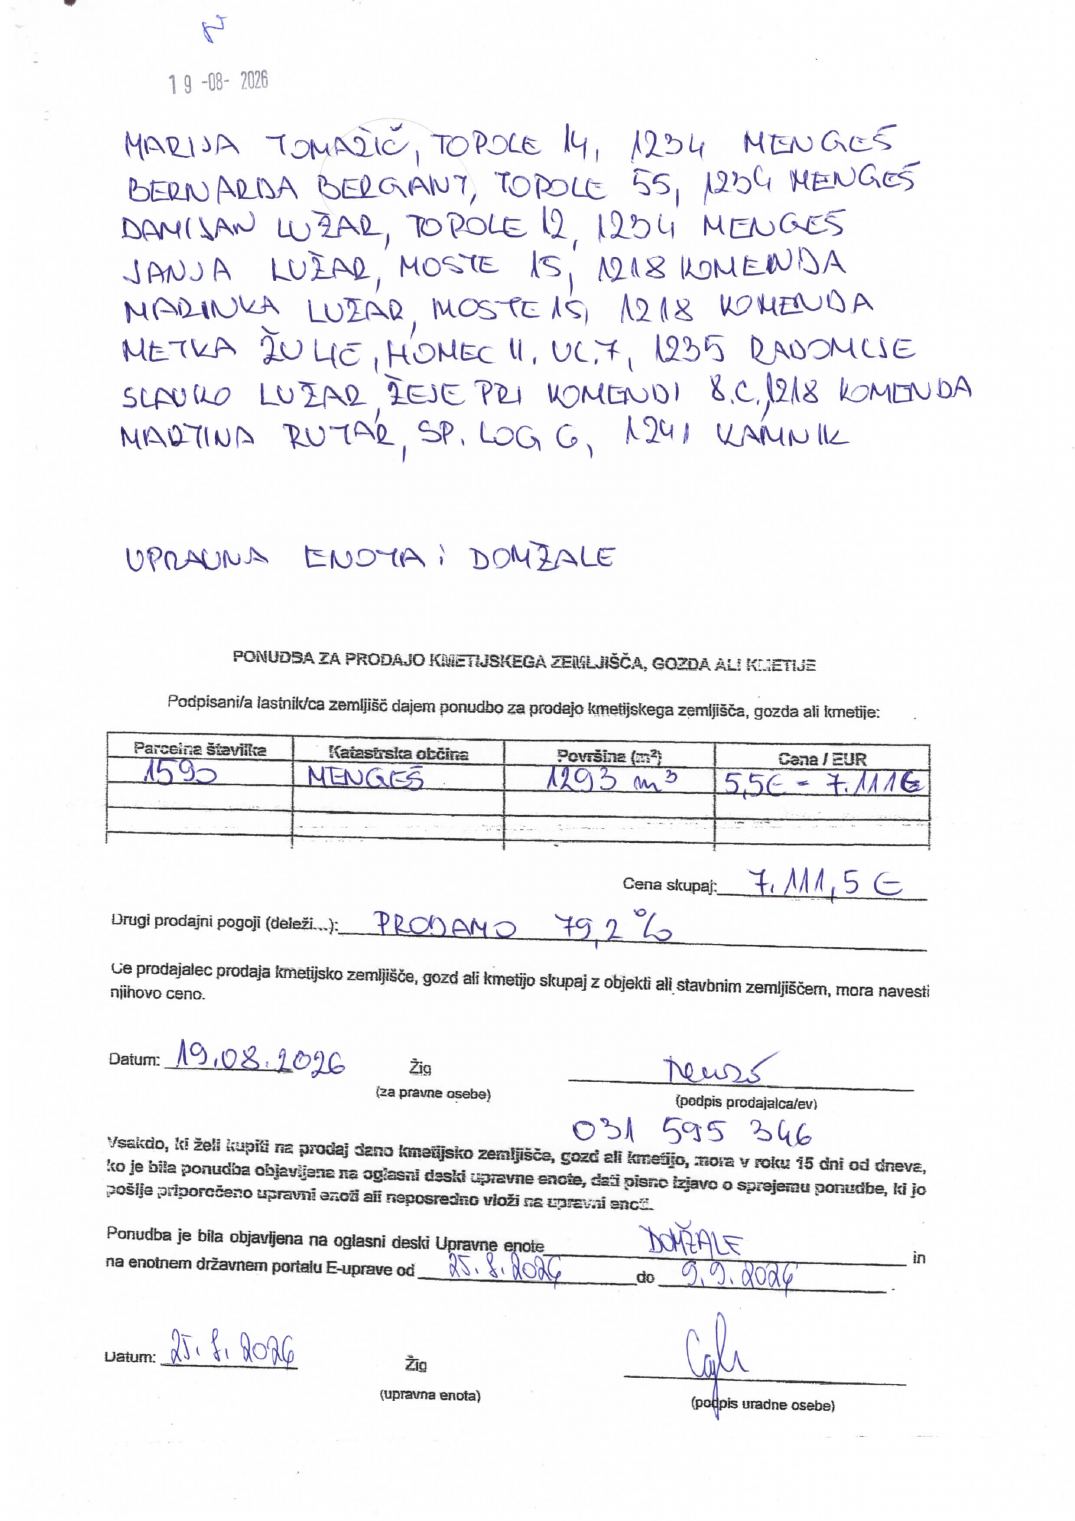 19 -08- 2026
MARIJA TOMAŽIČ, TOPOLE 14, 1234 MENGEŠ
BERNARDA BERGANT, TOPOLE 55, 1234 MENGEŠ
DAMIJAN LUŽAR, TOPOLE 12, 1234 MENGEŠ
JANJA LUŽAR, MOSTE 15, 1218 KOMENDA
MARINKA LUŽAR, MOSTE 15, 1218 KOMENDA
METKA ŽULIČ, HOMEC II. UL. 7, 1235 RADOMLJE
SLAVKO LUŽAR, ŽEJE PRI KOMENDI 8.C, 1218 KOMENDA
MARTINA RUTAR, SP. LOG 6, 1241 KAMNIK
UPRAVNA ENOTA: DOMŽALE
PONUDBA ZA PRODAJO KMETIJSKEGA ZEMLJIŠČA, GOZDA ALI KMETIJE
Podpisani/a lastnik/ca zemljišč dajem ponudbo za prodajo kmetijskega zemljišča, gozda ali kmetije:
Parcelna številka Katastrska občina Površina (m²) Cena / EUR
1590 MENGEŠ 1293 m³ 5,5€ = 7.111€
Cena skupaj: 7.111,5 €
Drugi prodajni pogoji (deleži...): PRODAMO 79,2 %
Če prodajalec prodaja kmetijsko zemljišče, gozd ali kmetijo skupaj z objekti ali stavbnim zemljiščem, mora navesti
njihovo ceno.
Datum: 19.08.2026 Žig
(za pravne osebe) (podpis prodajalca/ev)
031 595 346
Vsakdo, ki želi kupiti na prodaj dano kmetijsko zemljišče, gozd ali kmetijo, mora v roku 15 dni od dneva,
ko je bila ponudba objavljena na oglasni deski upravne enote, dati pisno izjavo o sprejemu ponudbe, ki jo
pošlje priporočeno upravni enoti ali neposredno vloži na upravni enoti.
Ponudba je bila objavljena na oglasni deski Upravne enote DOMŽALE in
na enotnem državnem portalu E-uprave od 25.8.2026 do 9.9.2026
Datum: 25.8.2026 Žig
(upravna enota) (podpis uradne osebe)